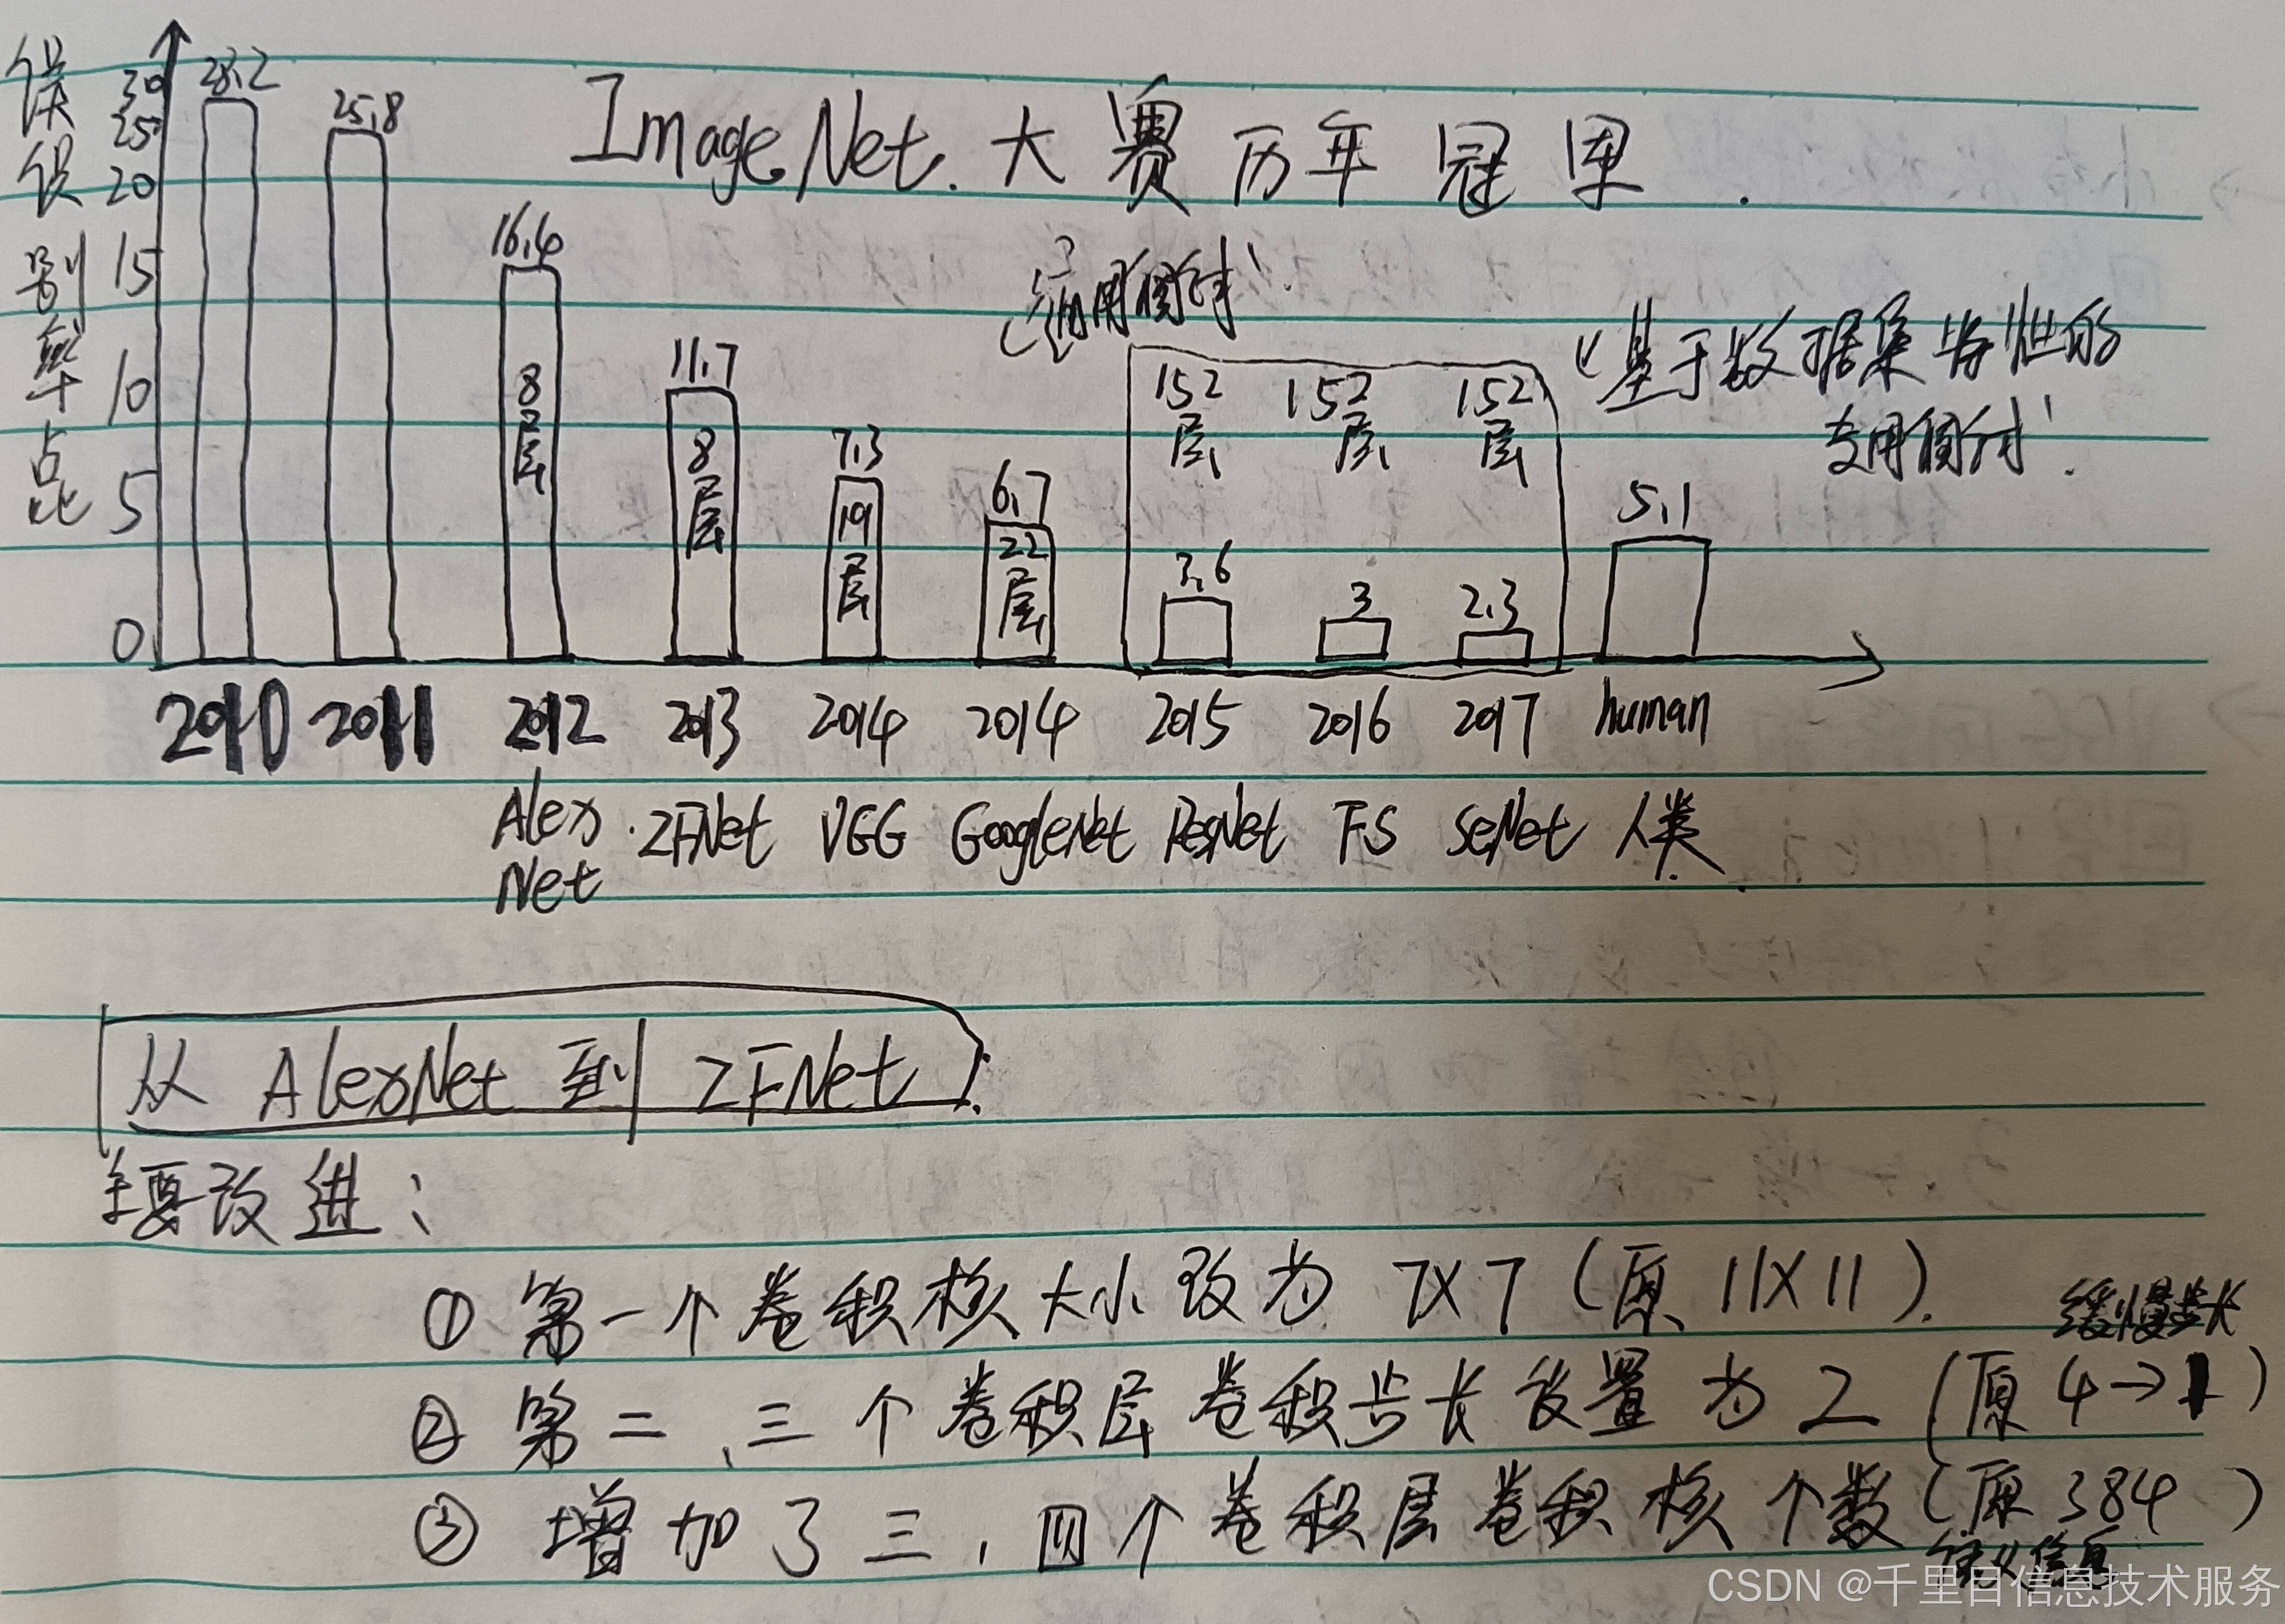 ImageNet.大赛历年冠军.
误识别率占比
30
25
20
15
10
5
0
28.2
25.8
16.4
8层
11.7
8层
7.3
19层
6.7
22层
152层
152层
152层
3.6
3
2.3
5.1
基于数据集特性的
专用
2010 2011 2012 2013 2014 2014 2015 2016 2017 human
Alex Net ZFNet VGG GoogleNet ResNet FS SeNet 人类
从 AlexNet 到 ZFNet.
主要改进:
① 第一个卷积核大小改为 7X7 (原 11X11).
缓慢步长
② 第二、三个卷积层卷积步长设置为 2 (原 4→1)
③ 增加了三,四个卷积层卷积核个数 (原 384 )
语义信息
CSDN @千里目信息技术服务